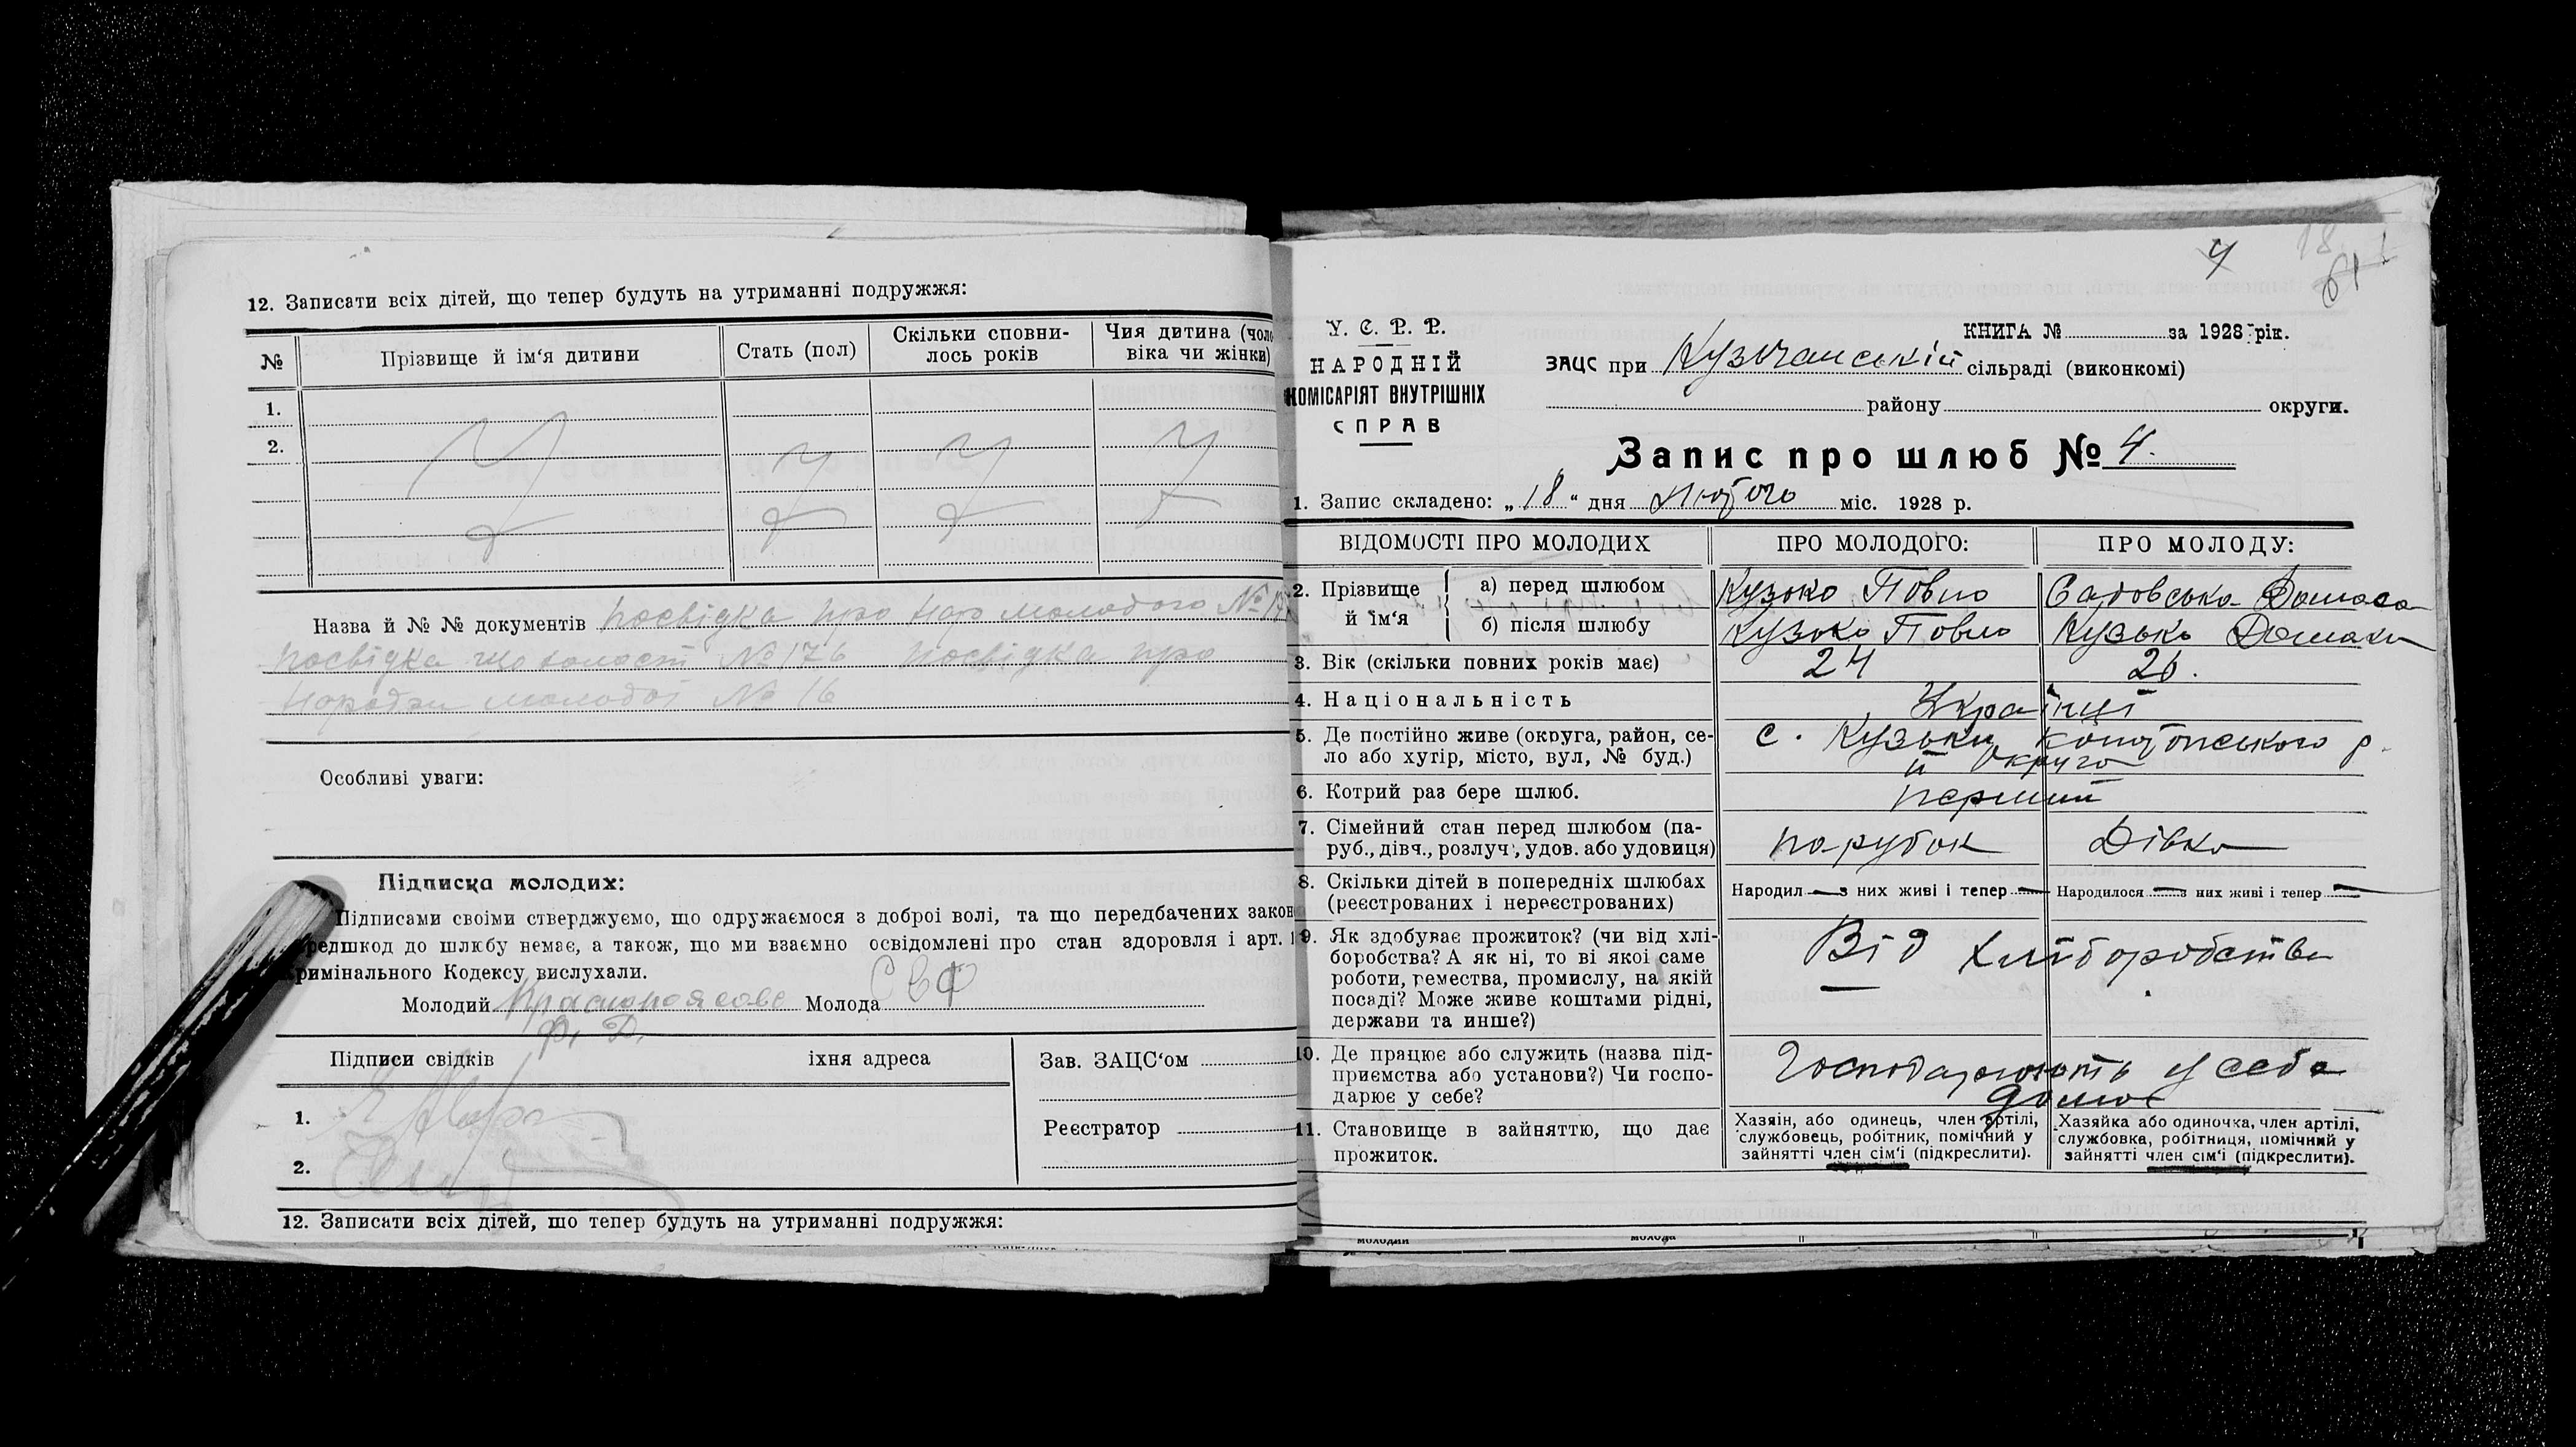 12. Записати всіх дітей, що тепер будуть на утриманні подружжя:
№
Прізвище й ім'я дитини
Стать (пол)
Скільки сповни-
лось років
Чия дитина (чоло
віка чи жінки)
1.
2.
Назва й № № документів посвідка про нар молодого № 17
посвідка що холост № 176 посвідка про
народж молодої № 16
Особливі уваги:
Підписка молодих:
Підписами своїми стверджуємо, що одружаємося з доброї волі, та що передбачених закон
редшкод до шлюбу немає, а також, що ми взаємно освідомлені про стан здоровля і арт. 1
римінального Кодексу вислухали.
Молодий Молода
Підписи свідків
їхня адреса
Зав. ЗАЦС'ом
1.
Реєстратор
2.
12. Записати всіх дітей, що тепер будуть на утриманні подружжя:
4
18
61
У. С. Р. Р.
НАРОДНІЙ
КОМІСАРІЯТ ВНУТРІШНІХ
СПРАВ
КНИГА № за 1928 рік.
ЗАЦС при сільраді (виконкомі)
району округи.
Запис про шлюб № 4.
1. Запис складено: „18" дня Лютого міс. 1928 р.
ВІДОМОСТІ ПРО МОЛОДИХ
ПРО МОЛОДОГО:
ПРО МОЛОДУ:
2. Прізвище
й ім'я
а) перед шлюбом
Кузько Повло
Садовська Домаха
б) після шлюбу
Кузько Повло
Кузько Домаха
3. Вік (скільки повних років має)
24
26.
4. Національність
Українці
5. Де постійно живе (округа, район, се-
ло або хутір, місто, вул, № буд.)
с. Кузьки Конотопського р.
й округа
6. Котрий раз бере шлюб.
перший
7. Сімейний стан перед шлюбом (па-
руб., дівч., розлуч., удов. або удовиця)
парубок
Дівка
8. Скільки дітей в попередніх шлюбах
(реєстрованих і нереєстрованих)
Народил — з них живі і тепер —
Народилося — з них живі і тепер —
9. Як здобуває прожиток? (чи від хлі-
боробства? А як ні, то ві якої саме
роботи, ремества, промислу, на якій
посаді? Може живе коштами рідні,
держави та инше?)
Від хліборобства
10. Де працює або служить (назва під-
приємства або установи?) Чи госпо-
дарює у себе?
Господарюють у себе
дома
11. Становище в зайняттю, що дає
прожиток.
Хазяїн, або одинець, член артілі,
службовець, робітник, помічний у
зайнятті член сім'ї (підкреслити).
Хазяйка або одиночка, член артілі,
службовка, робітниця, помічний у
зайнятті член сім'ї (підкреслити).
молодий
молода